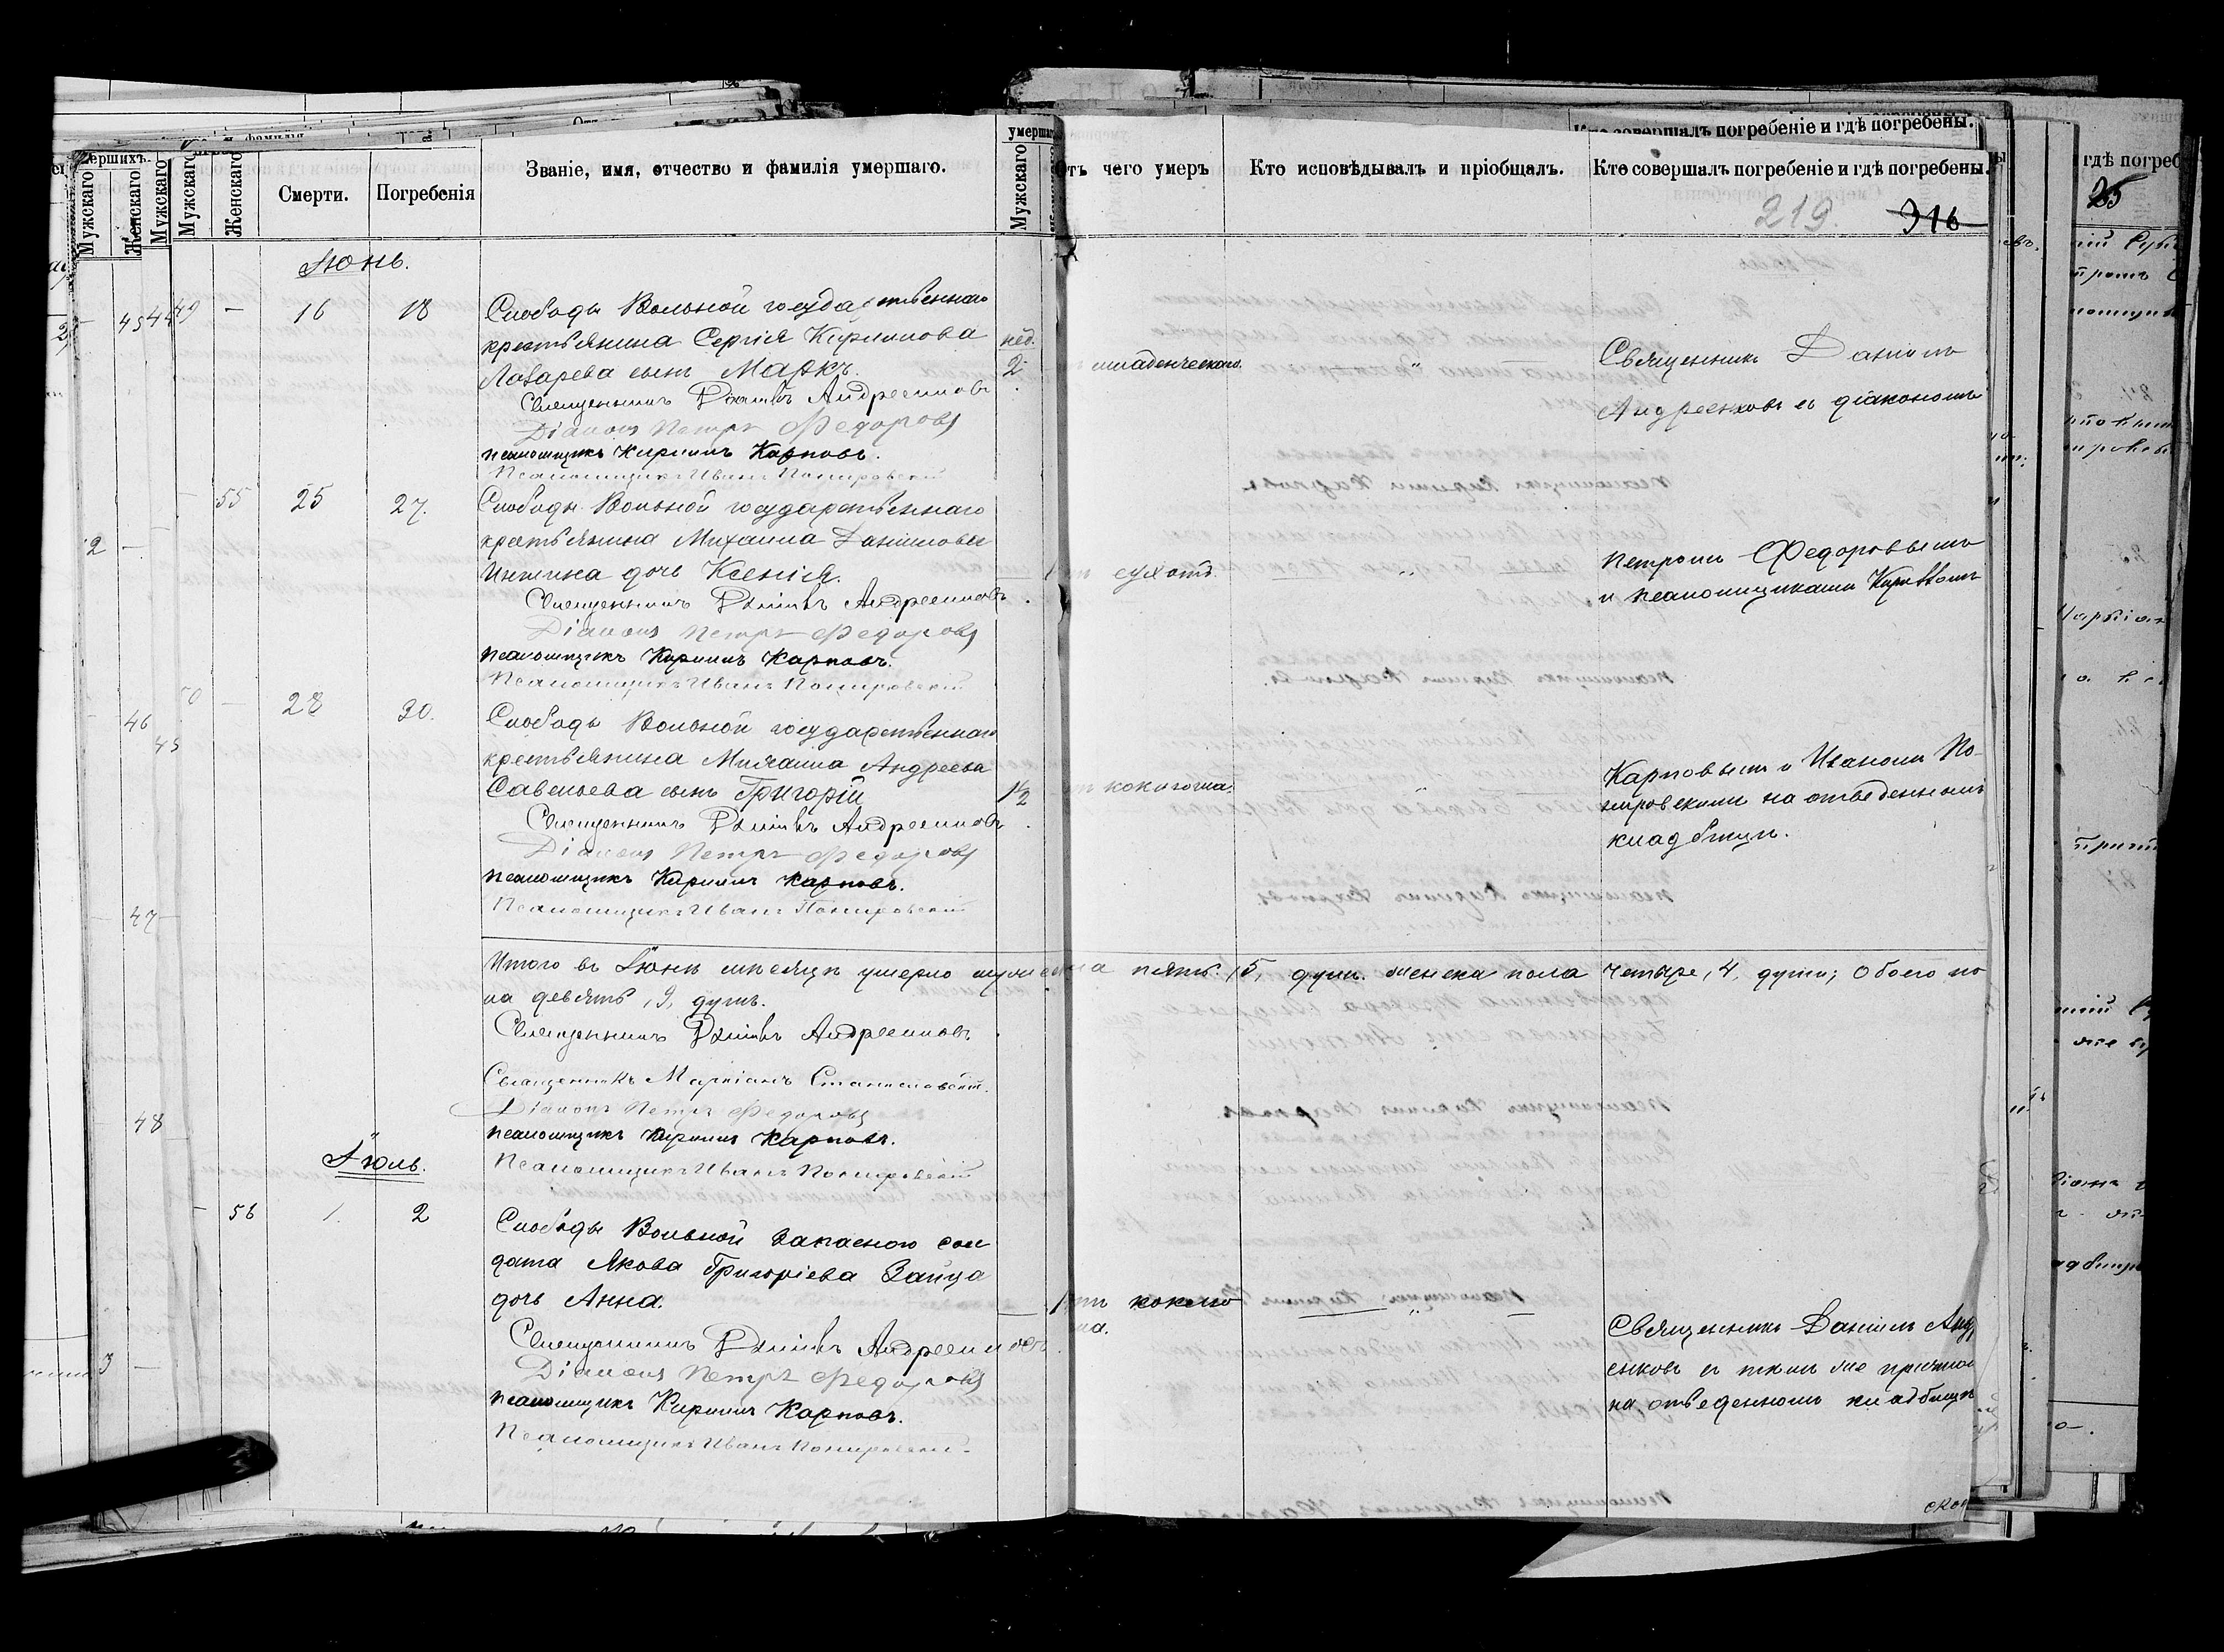 умершихъ.
Мужскаго
Женскаго
Мужскаго
Мужскаго
Женскаго
Смерти.
Погребенія
Званіе, имя, отчество и фамилія умершаго.
умершаго
Мужскаго
Отъ чего умеръ
Кто исповѣдывалъ и пріобщалъ.
Кто совершалъ погребеніе и гдѣ погребены.
Кто совершалъ погребеніе и гдѣ погребены.
гдѣ погреб
25
219. 316
Іюнь.
49 — 16 18
Слободы Вольной государственнаго
крестьянина Сергія Кириллова
Лазарева сынъ Маркъ.
нед.
2
младенческаго.
Священникъ Даніилъ
Андреенковъ съ діакономъ
Священникъ Даніилъ Андреенковъ
Діаконъ Петръ Федоровъ
псаломщикъ Кириллъ Карповъ.
Псаломщикъ Иванъ
— 55 25 27.
Слободы Вольной государственнаго
крестьянина Михаила Даніилова
дочь Ксенія.
1
отъ сухотъ.
Петромъ Федоровымъ
и псаломщиками Кирилломъ
Священникъ Даніилъ Андреенковъ
Діаконъ Петръ Федоровъ
псаломщикъ Кириллъ Карповъ.
Псаломщикъ Иванъ
50 — 28 30.
Слободы Вольной государственнаго
крестьянина Михаила Андреева
Савельева сынъ Григорій
1/2
отъ коклюша.
Карповымъ и Иваномъ По-
на отведенномъ
кладбищѣ.
Священникъ Даніилъ Андреенковъ
Діаконъ Петръ Федоровъ
псаломщикъ Кириллъ Карповъ.
Псаломщикъ Иванъ
Итого въ Іюнѣ мѣсяцѣ умерло мужеска пола пять, 5, душъ. женска пола четыре, 4, души; обоего по
ла девять, 9, душъ.
Священникъ Даніилъ Андреенковъ.
Священникъ Маркіанъ
Діаконъ Петръ Федоровъ
псаломщикъ Кириллъ Карповъ.
Псаломщикъ Иванъ
Іюль.
— 56 1. 2
Слободы Вольной запаснаго сол
дата Якова Григоріева Зайца
дочь Анна.
1
отъ коклю
ша.
Священникъ Даніилъ Андре
енковъ съ тѣмъ же причтомъ
на отведенномъ кладбищѣ
Священникъ Даніилъ Андреенковъ
Діаконъ Петръ Федоровъ
псаломщикъ Кириллъ Карповъ.
Псаломщикъ Иванъ
45
46
45
47
48
2 —
3 —